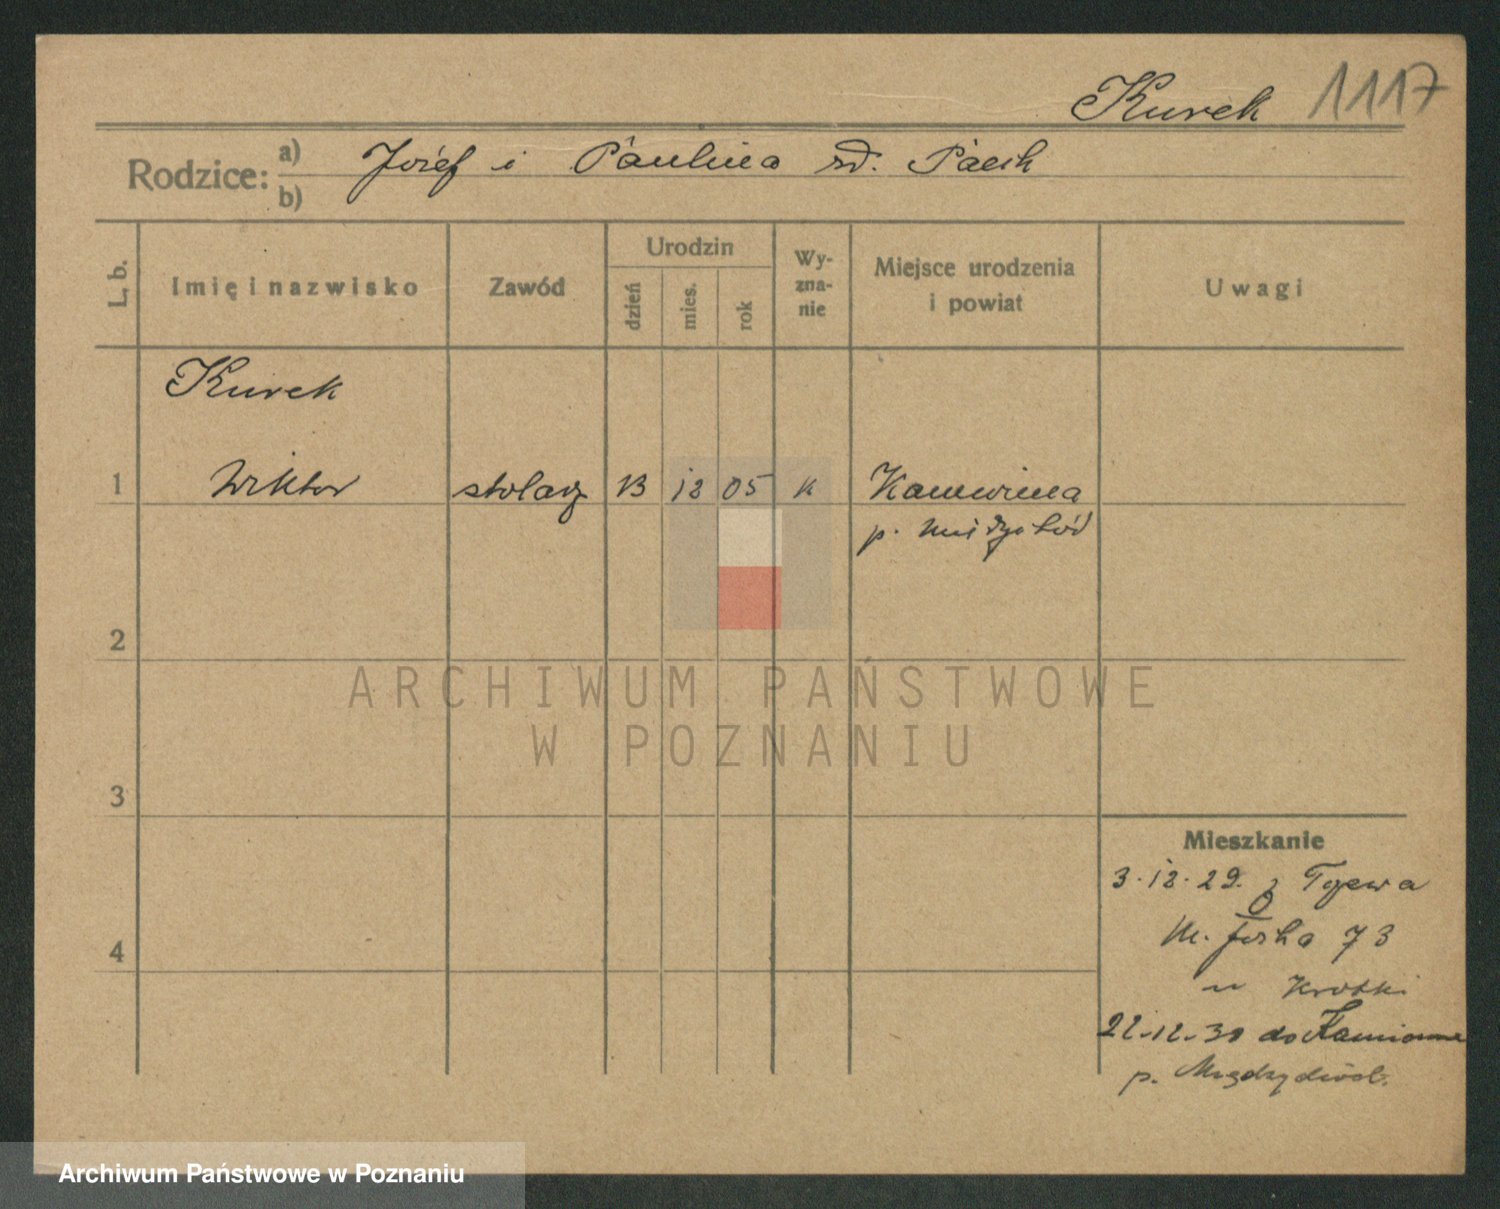 Kurek 1117
Rodzice: a) b) Józef i Paulina zd. Paech
L. b. Imię i nazwisko Zawód Urodzin dzień mies. rok Wyznanie Miejsce urodzenia i powiat Uwagi
Kurek
1 Wiktor stolarz 13 12 05 k Kamionna
p. Międzychód
2
ARCHIWUM PAŃSTWOWE
W POZNANIU
3
Mieszkanie
3.12.29. z
73
4
u
22.12.30 do Kamionna
p. Międzychód.
Archiwum Państwowe w Poznaniu